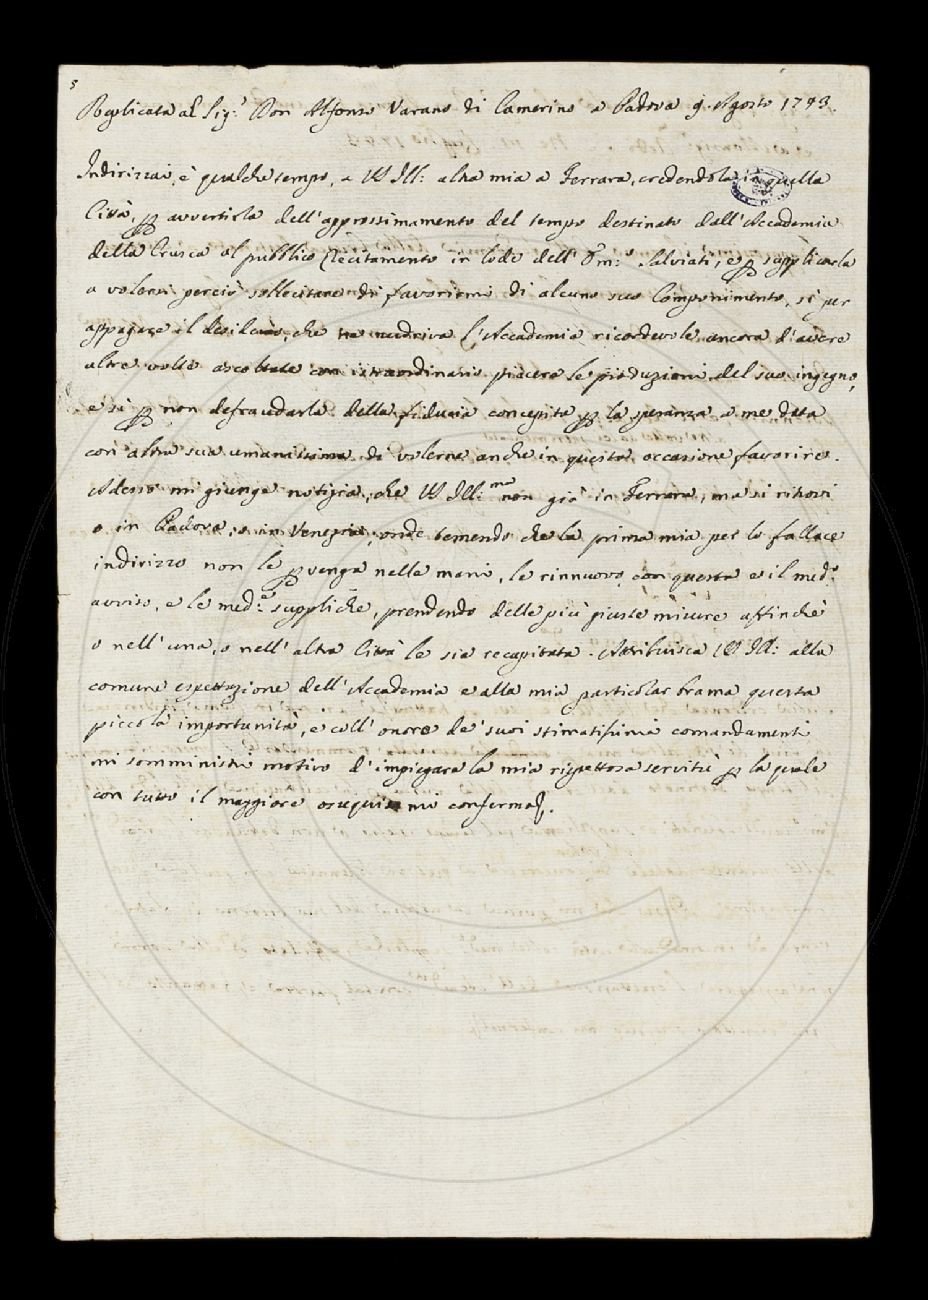 Replicata al Sig.r Don Alfonso Varano di Camerino a Padova 9. Agosto 1743.
Indirizzai, è qualche tempo, a VS Ill: altra mia a Ferrara, credendola in quella
Città, per avvertirla dell'approssimamento del tempo destinato dall'Accademia
della Crusca al pubblico recitamento in lode dell' Salviati, e per supplicarla
a volersi perciò sollecitare di favorirmi di alcuno suo Componimento, sì per
appagare il desiderio, che nudriva l'Accademia ricordevole ancora d'avere
altre volte ascoltate con istraordinario piacere le produzioni del suo ingegno,
e sì per non defraudarla della fiducia concepita per la speranza a me data
con altra sua umanissima di volerne anche in questa occasione favorire.
Adesso mi giunge notizia, che VS Ill:ma non già in Ferrara, ma si ritrovi
o in Padova, o in Venezia, onde temendo che la prima mia per lo fallace
indirizzo non le pervenga nelle mani, le rinnuovo con questa e il med.o
avviso, e le med.e suppliche, prendendo delle più giuste misure affinchè
o nell'una, o nell'altra Città le sia recapitata. Attribuisca VS Ill: alla
comune espettazione dell'Accademia e alla mia particolar brama questa
piccola importunità, e coll'onore de' suoi stimatissimi comandamenti
mi somministri motivo d'impiegare la mia rispettosa servitù per la quale
con tutto il maggiore ossequio mi confermo